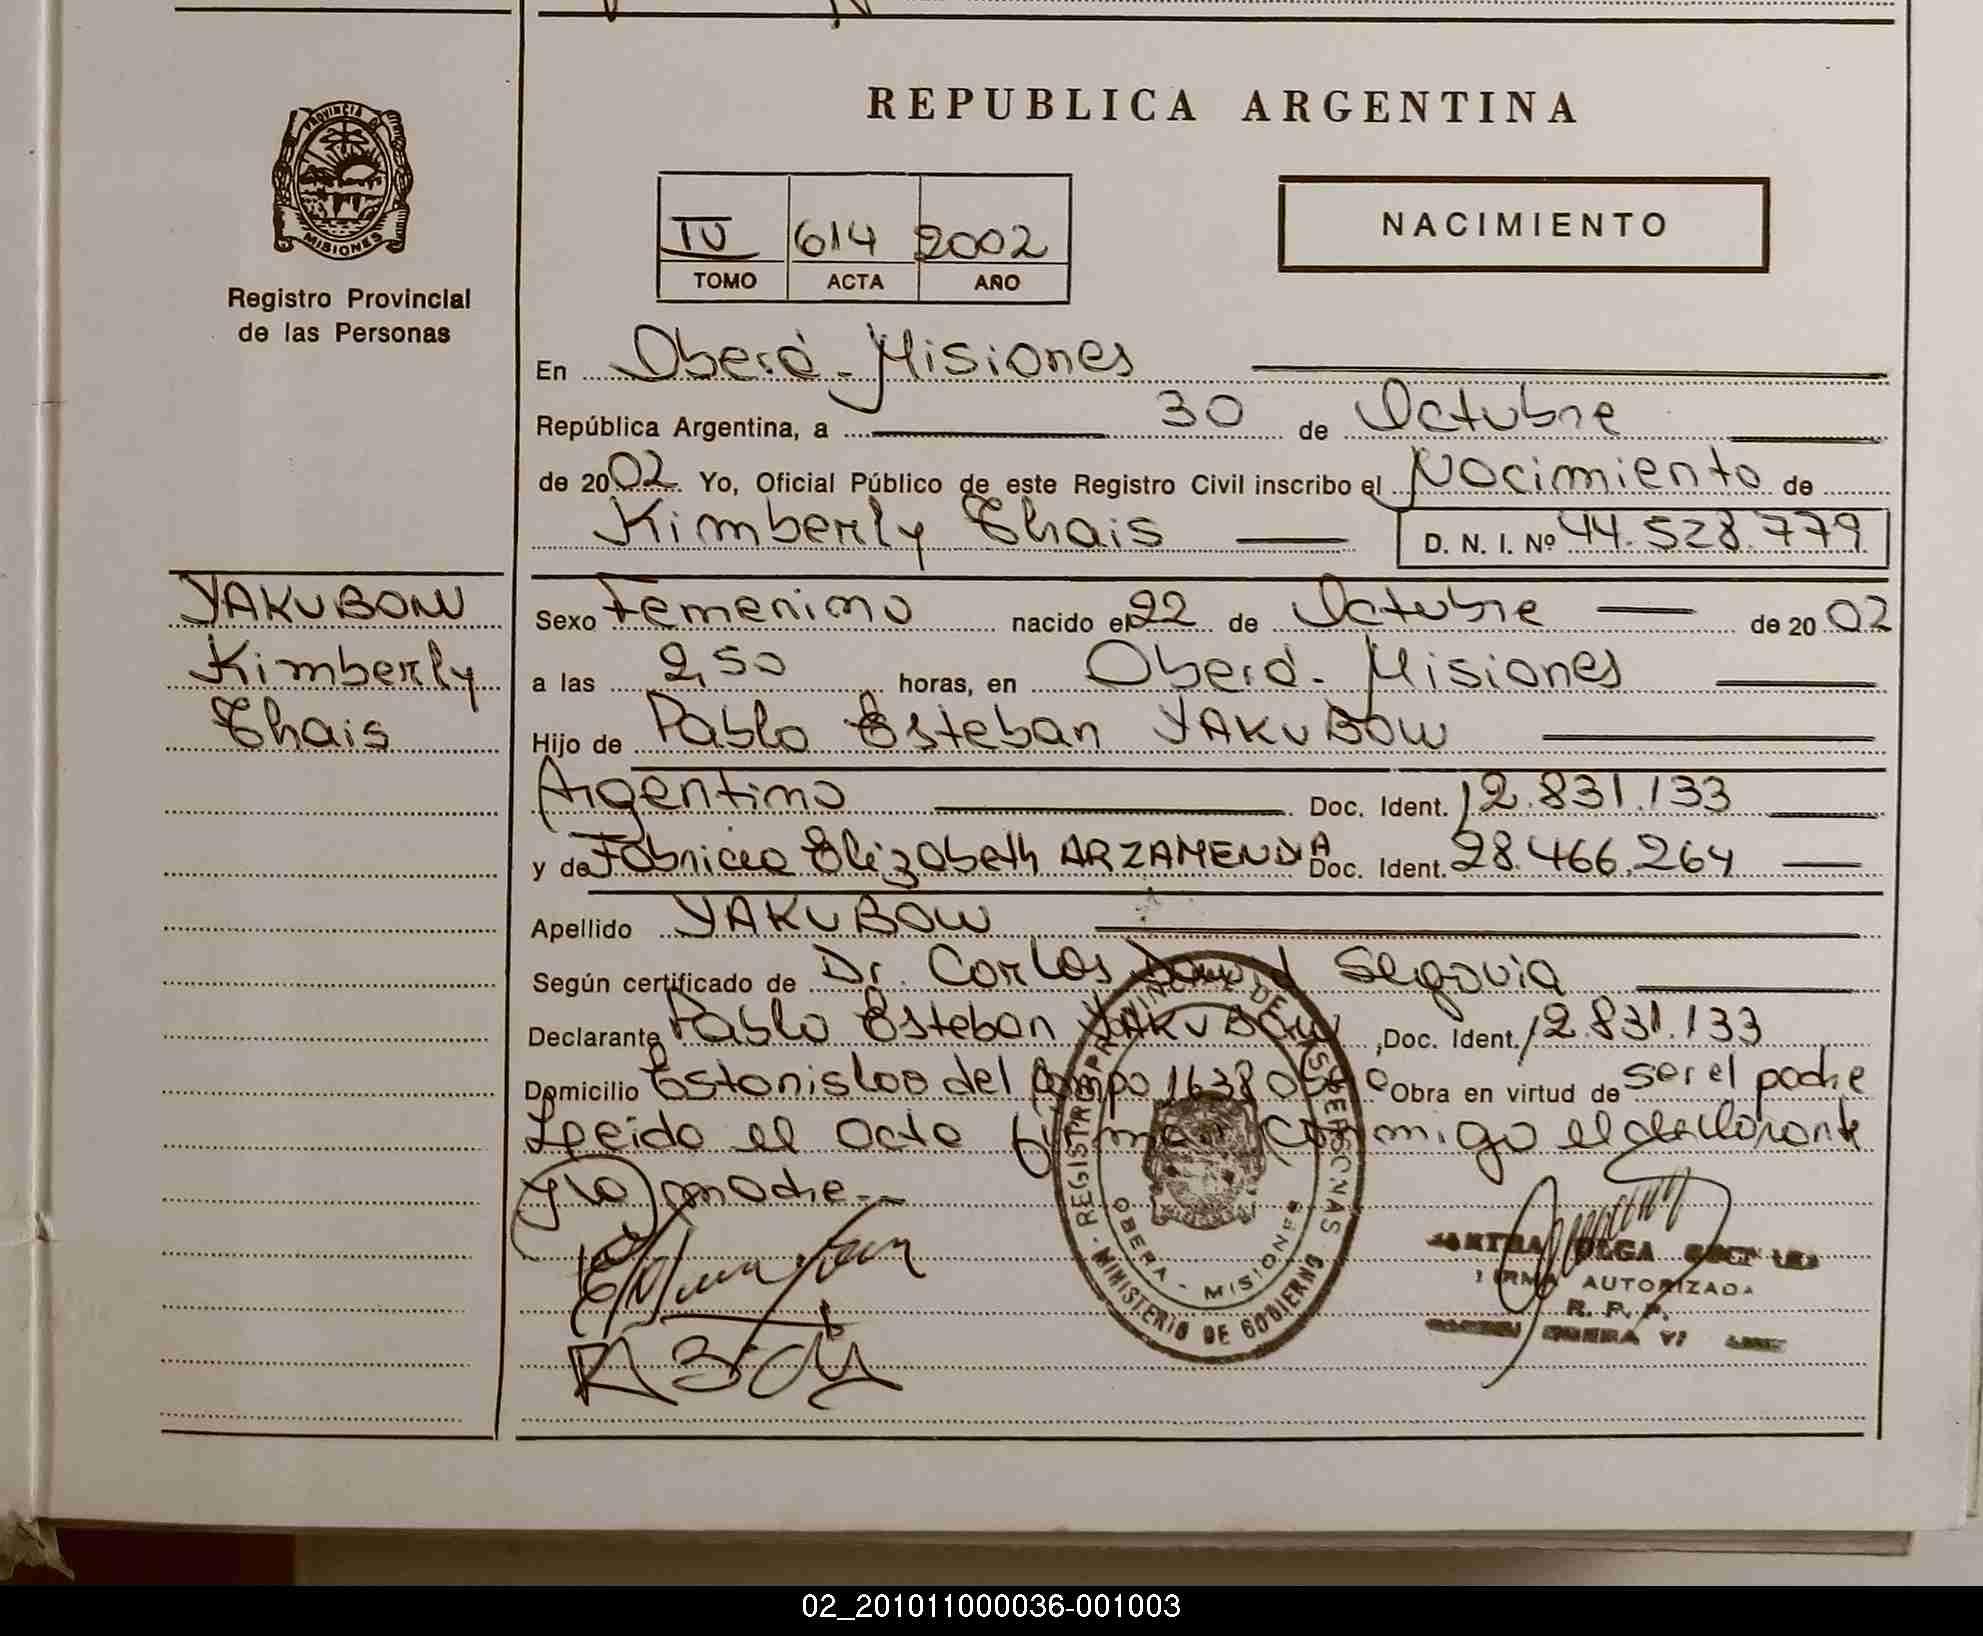 REPUBLICA ARGENTINA
PROVINCIA DE
MISIONES
Registro Provincial
de las Personas
IV 614 2002
TOMO ACTA AÑO
NACIMIENTO
En Oberá - Misiones
República Argentina, a 30 de Octubre
de 2002 Yo, Oficial Público de este Registro Civil inscribo el Nacimiento de
Kimberly Thais D. N. I. Nº 44.528.779
YAKUBOW
Kimberly
Thais
Sexo Femenino nacido el 22 de Octubre de 2002
a las 2,50 horas, en Oberá - Misiones
Hijo de Pablo Esteban YAKUBOW
Argentino Doc. Ident. 12.831.133
y de Fabricia Elizabeth ARZAMENDIA Doc. Ident. 28.466.264
Apellido YAKUBOW
Según certificado de Dr. Carlos David Segovia
Declarante Pablo Esteban YAKUBOW , Doc. Ident. 12.831.133
Domicilio Estanislao del Campo 1638 Obra en virtud de ser el padre
Leeido el acta firman conmigo el declarante
y la madre.-
REGISTRO PROVINCIAL DE LAS PERSONAS
OBERA - MISIONES
MINISTERIO DE GOBIERNO
OLGA
FIRMA AUTORIZADA
R. P. P.
02_201011000036-001003